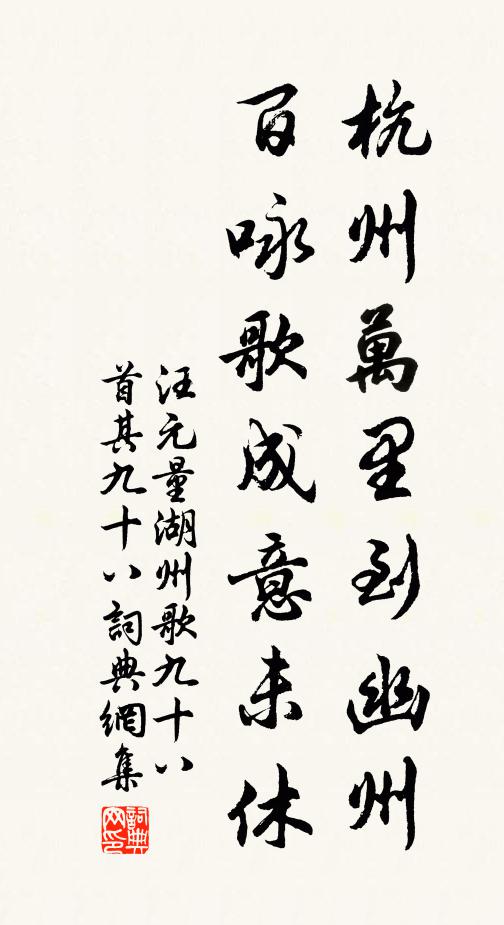 杭州萬里到幽州
百咏歌成意未休
汪元量湖州歌九十八
首其九十八詞典網集
詞典网印